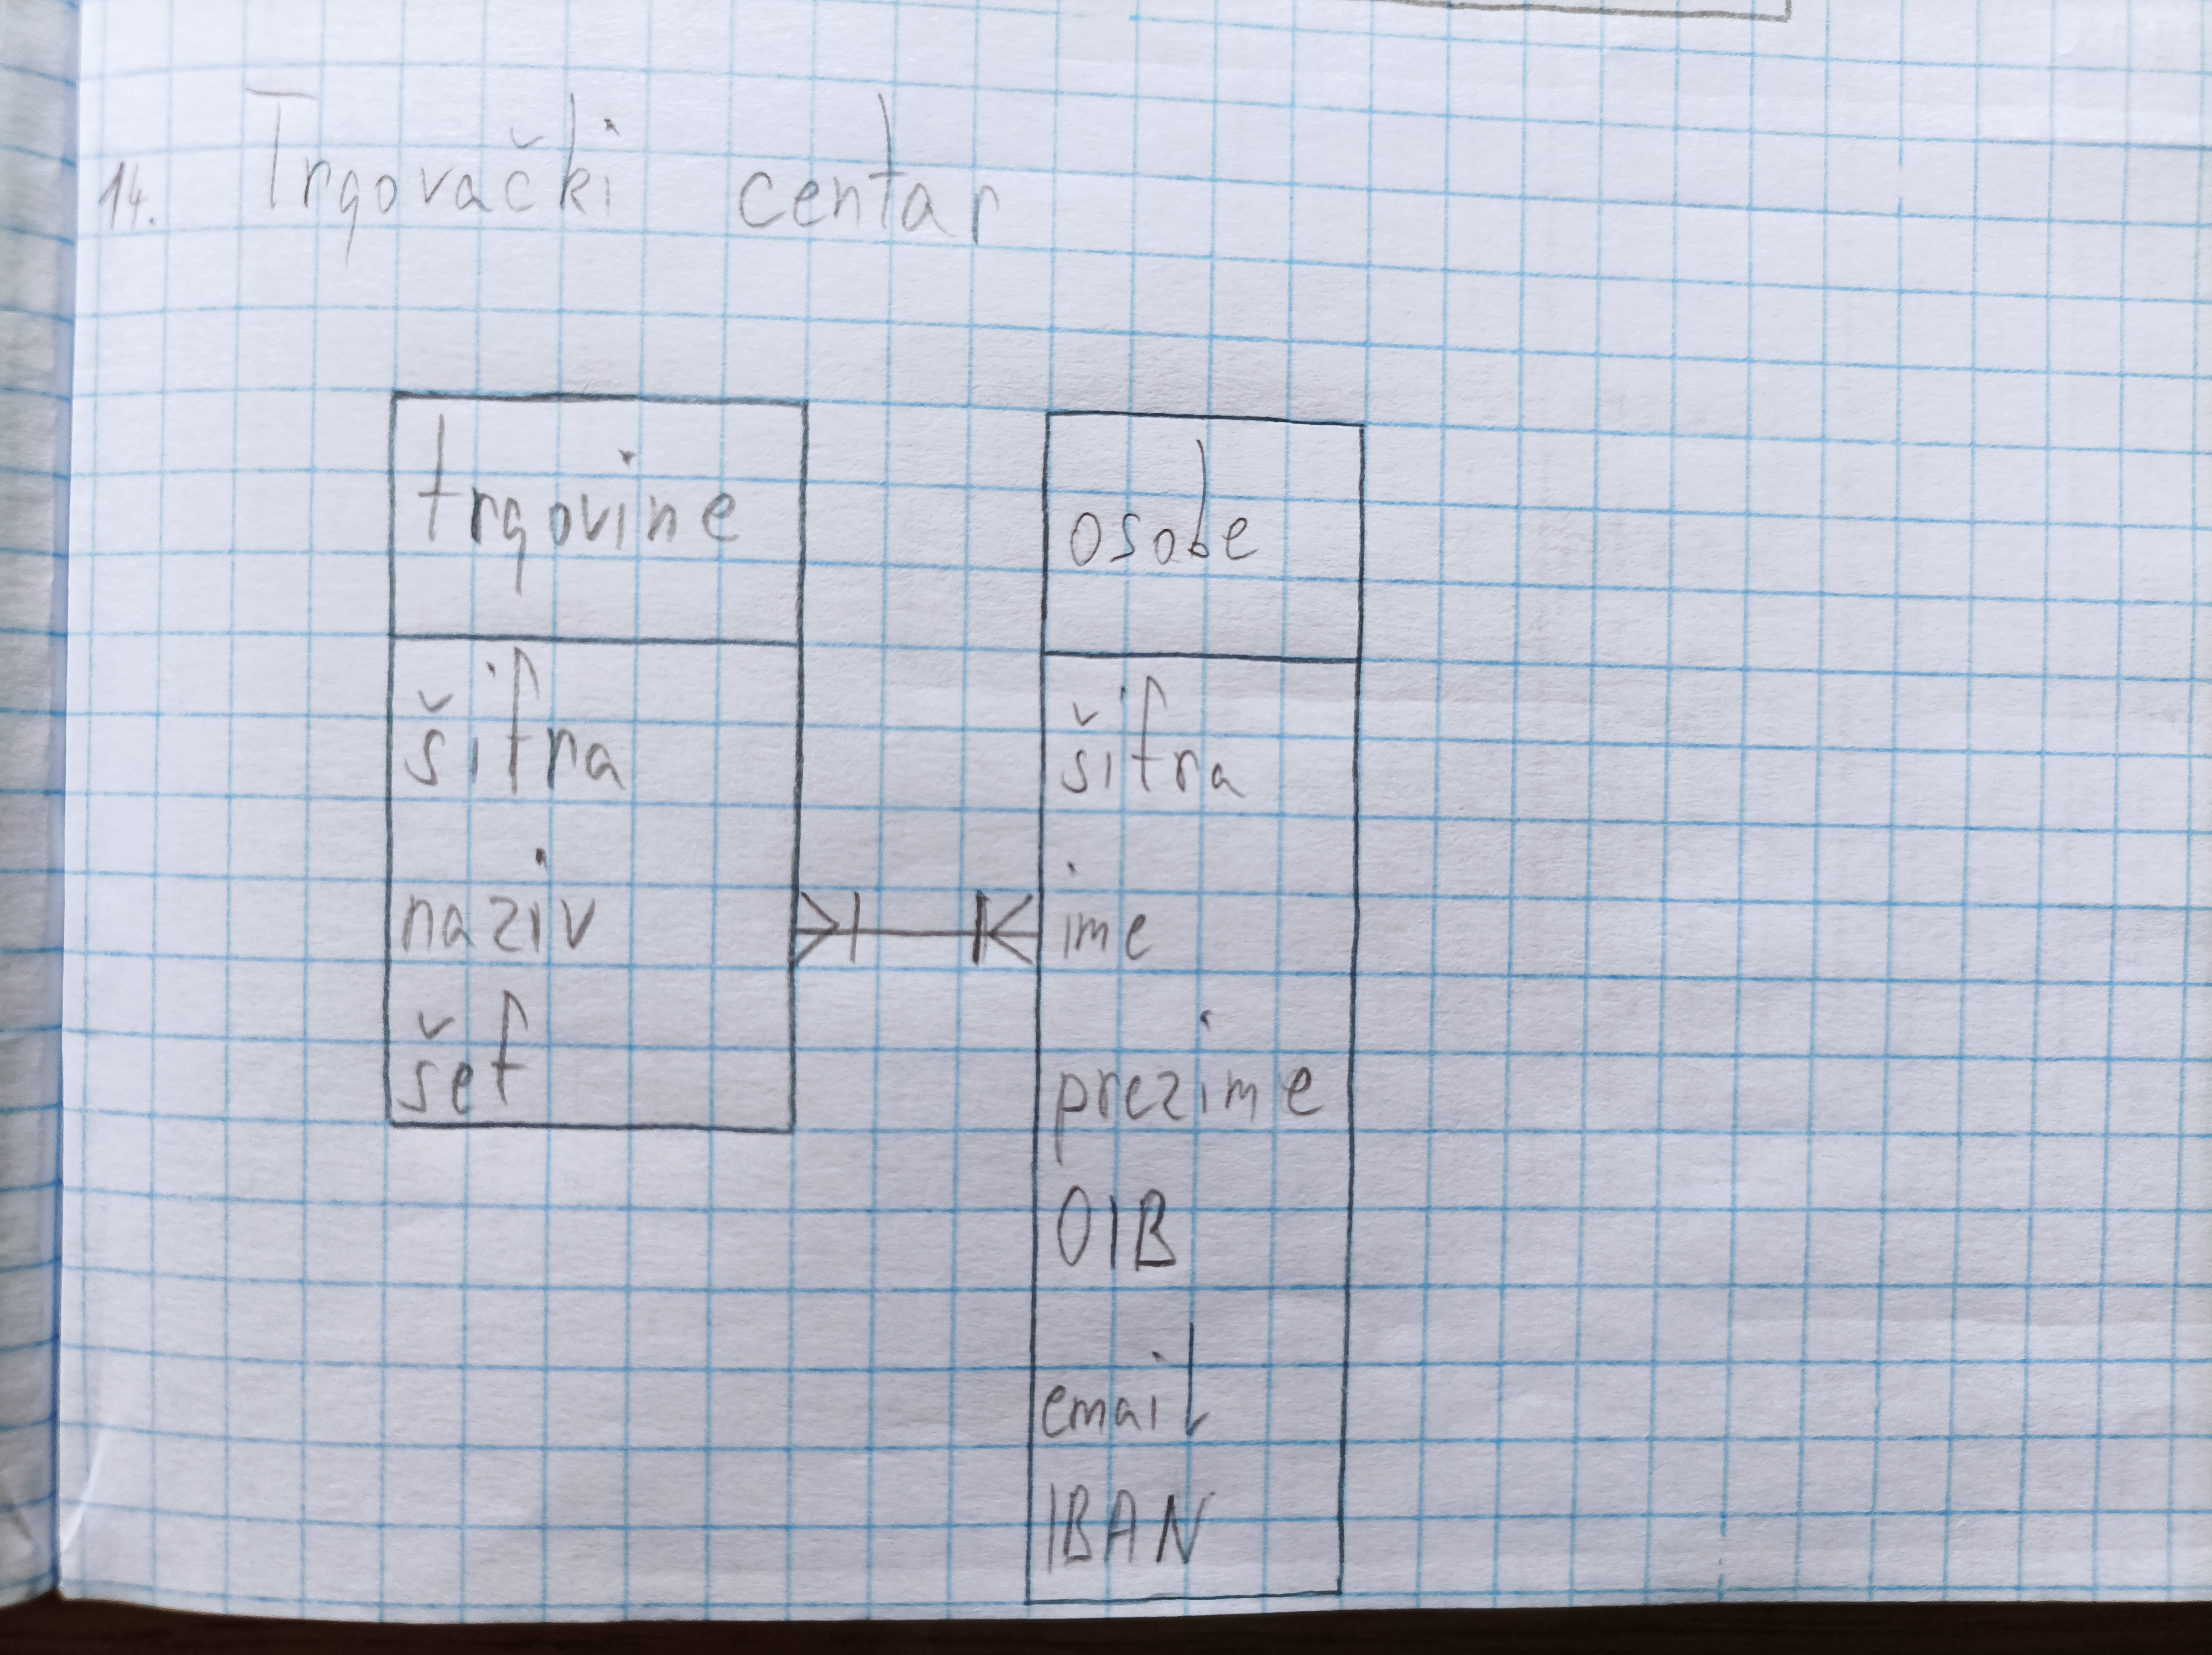 14. Trgovački centar
trgovine
šifra
naziv
šef
osobe
šifra
ime
prezime
OIB
email
IBAN